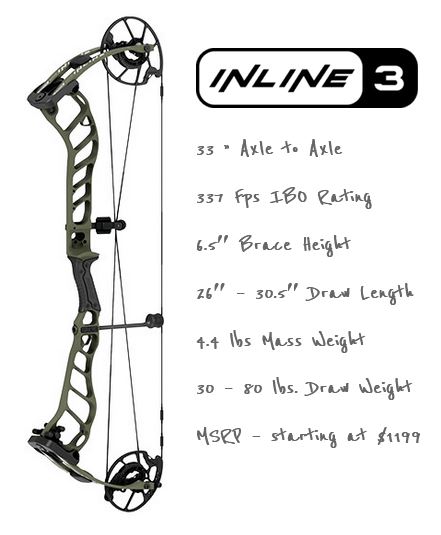 INLINE 3
33 " Axle to Axle
337 Fps IBO Rating
6.5" Brace Height
26" - 30.5" Draw Length
4.4 lbs Mass Weight
30 - 80 lbs. Draw Weight
MSRP - starting at $1199